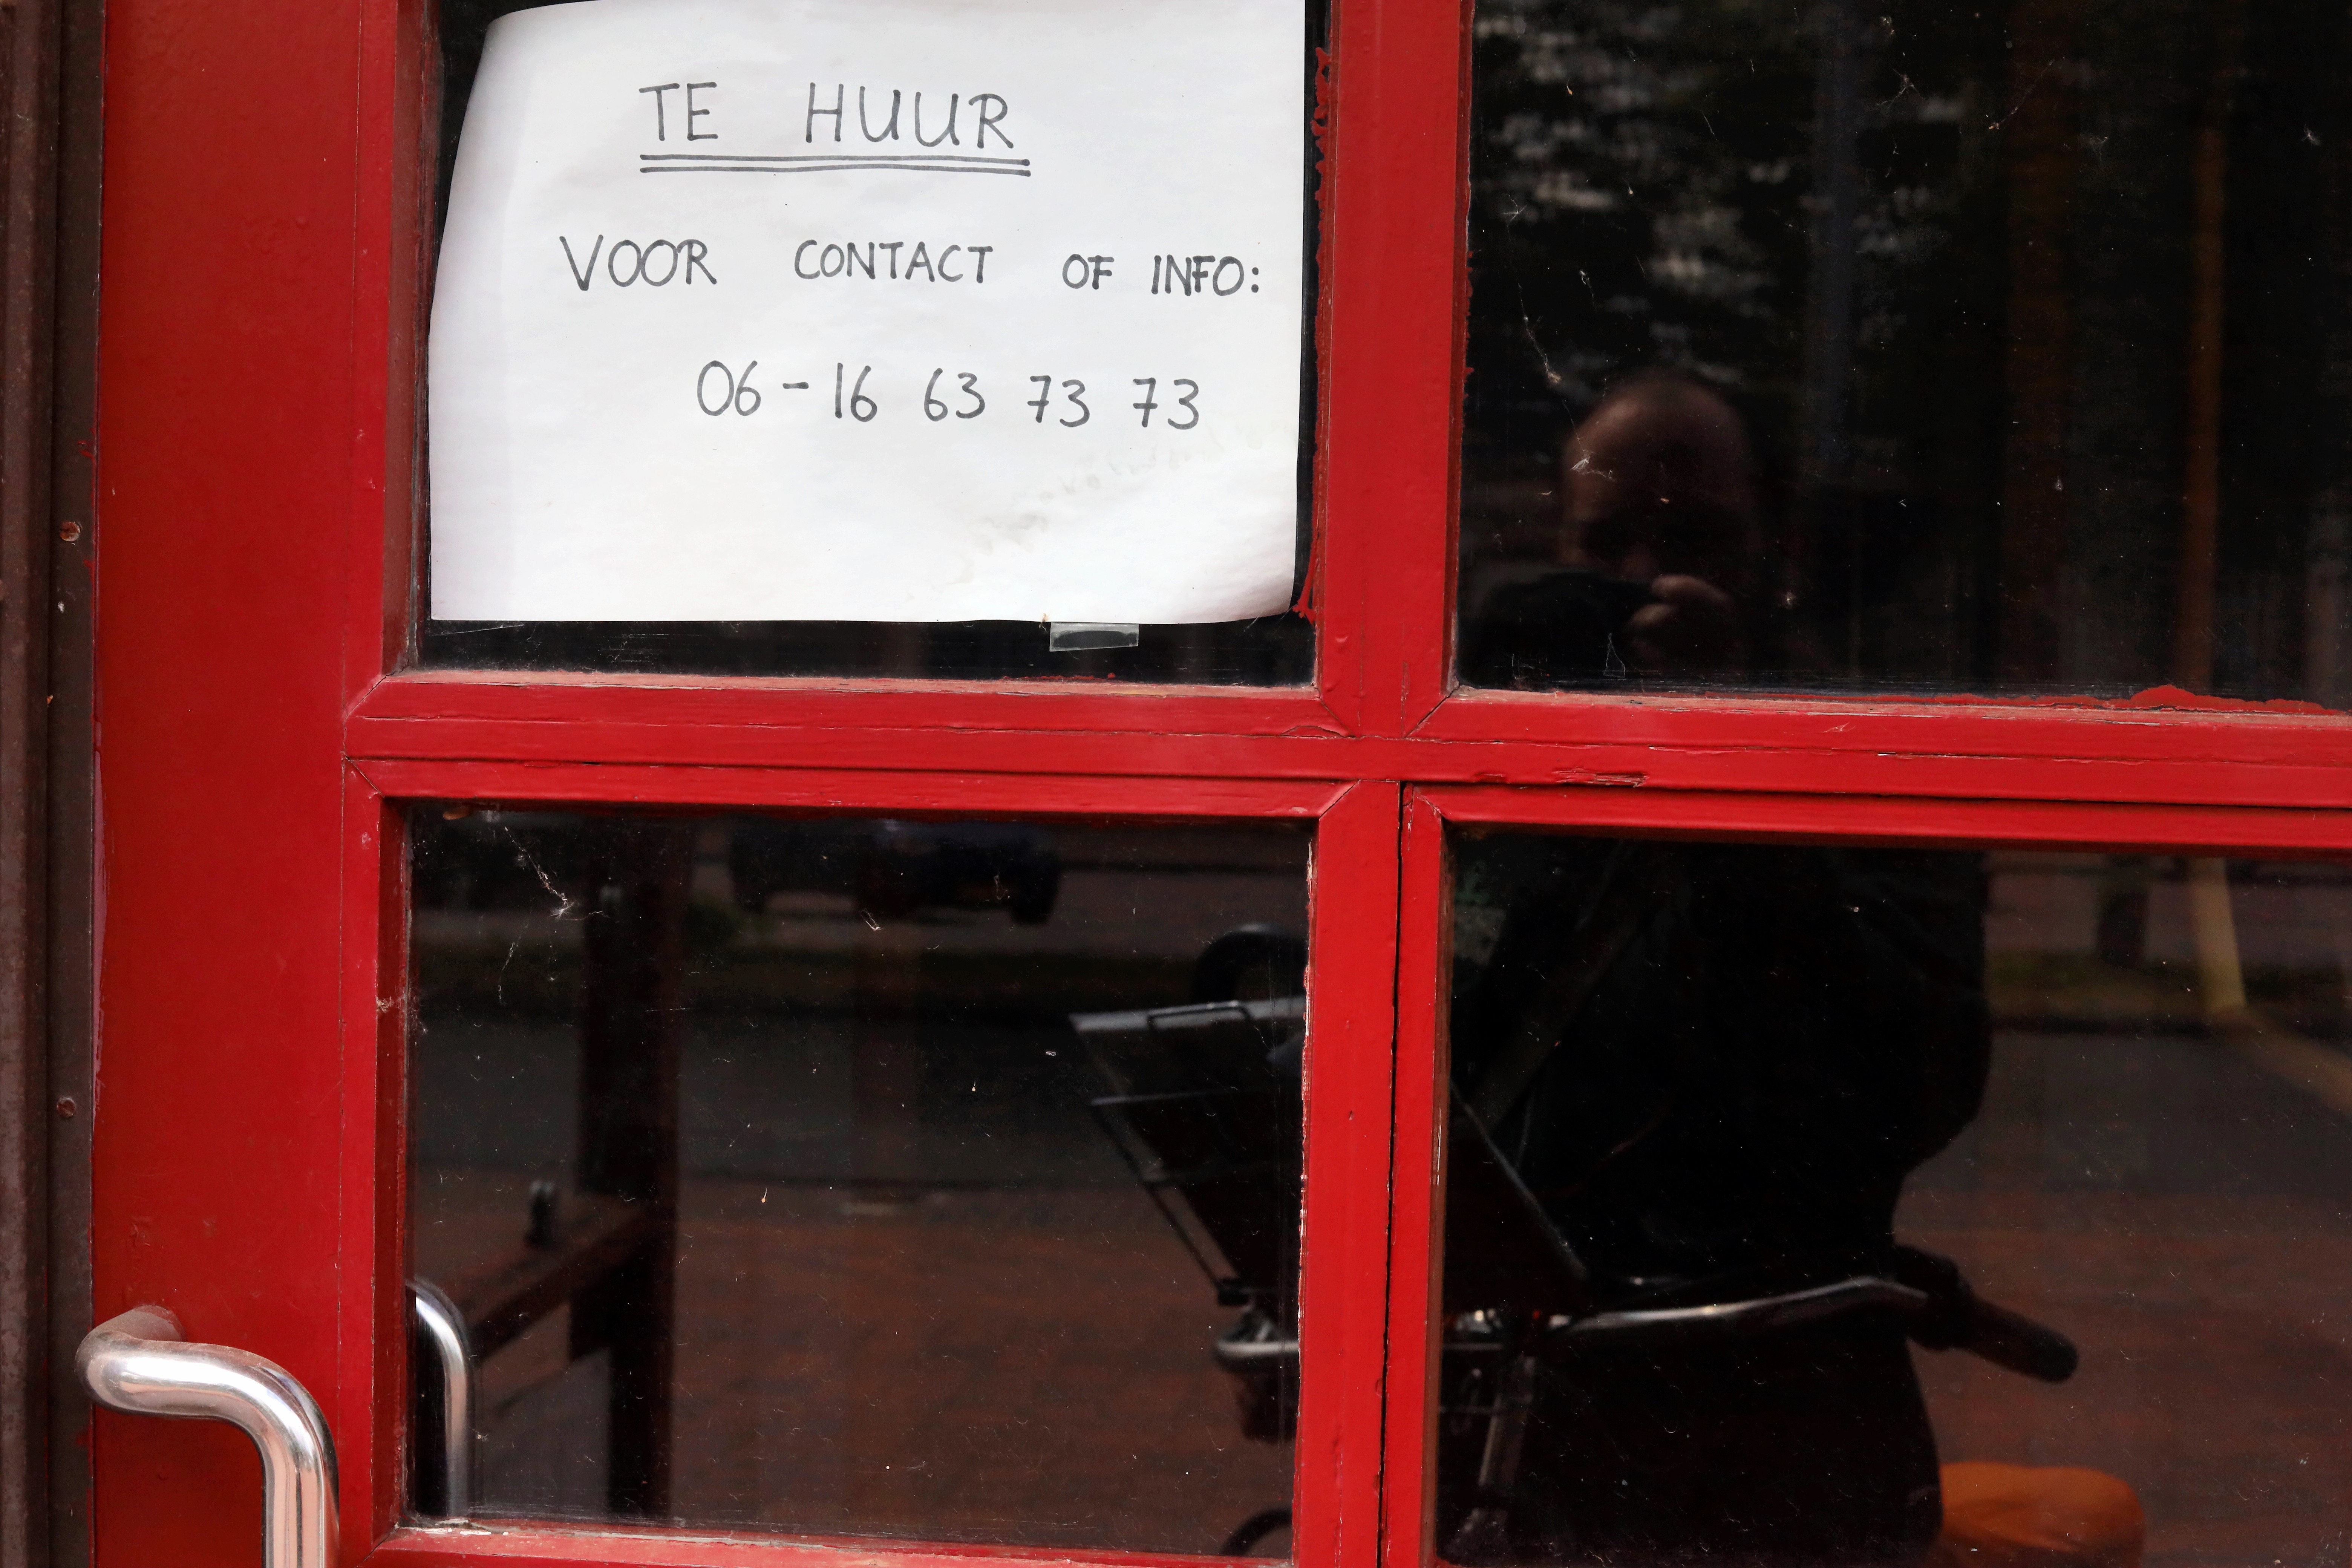 TE HUUR
VOOR CONTACT OF INFO:
06-16 63 73 73